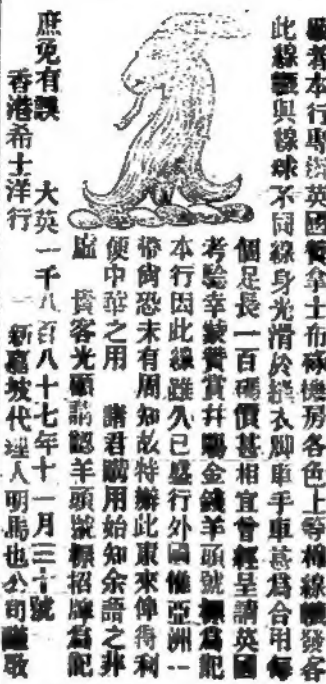 啟者本行專辦英國賓拿士布𥕢機房各色上等棉線轆發客
此線轆與線球不同線身光滑於縫衣脚車手車甚爲合用每
個足長一百碼價甚相宜曾經呈請英國
考驗幸蒙贊賞幷賜金錢羊頭號標爲記
本行因此線雖久已盛行外國惟亞洲一
帶尙恐未有周知故特辦此東來俾得利
便中華之用 諸君購用始知余語之非
虛 貴客光顧請認羊頭號標招牌爲記
庶免有誤 大英一千八百八十七年十一月三十號
香港希士洋行 新嘉坡代理人明馬也公司謹啟